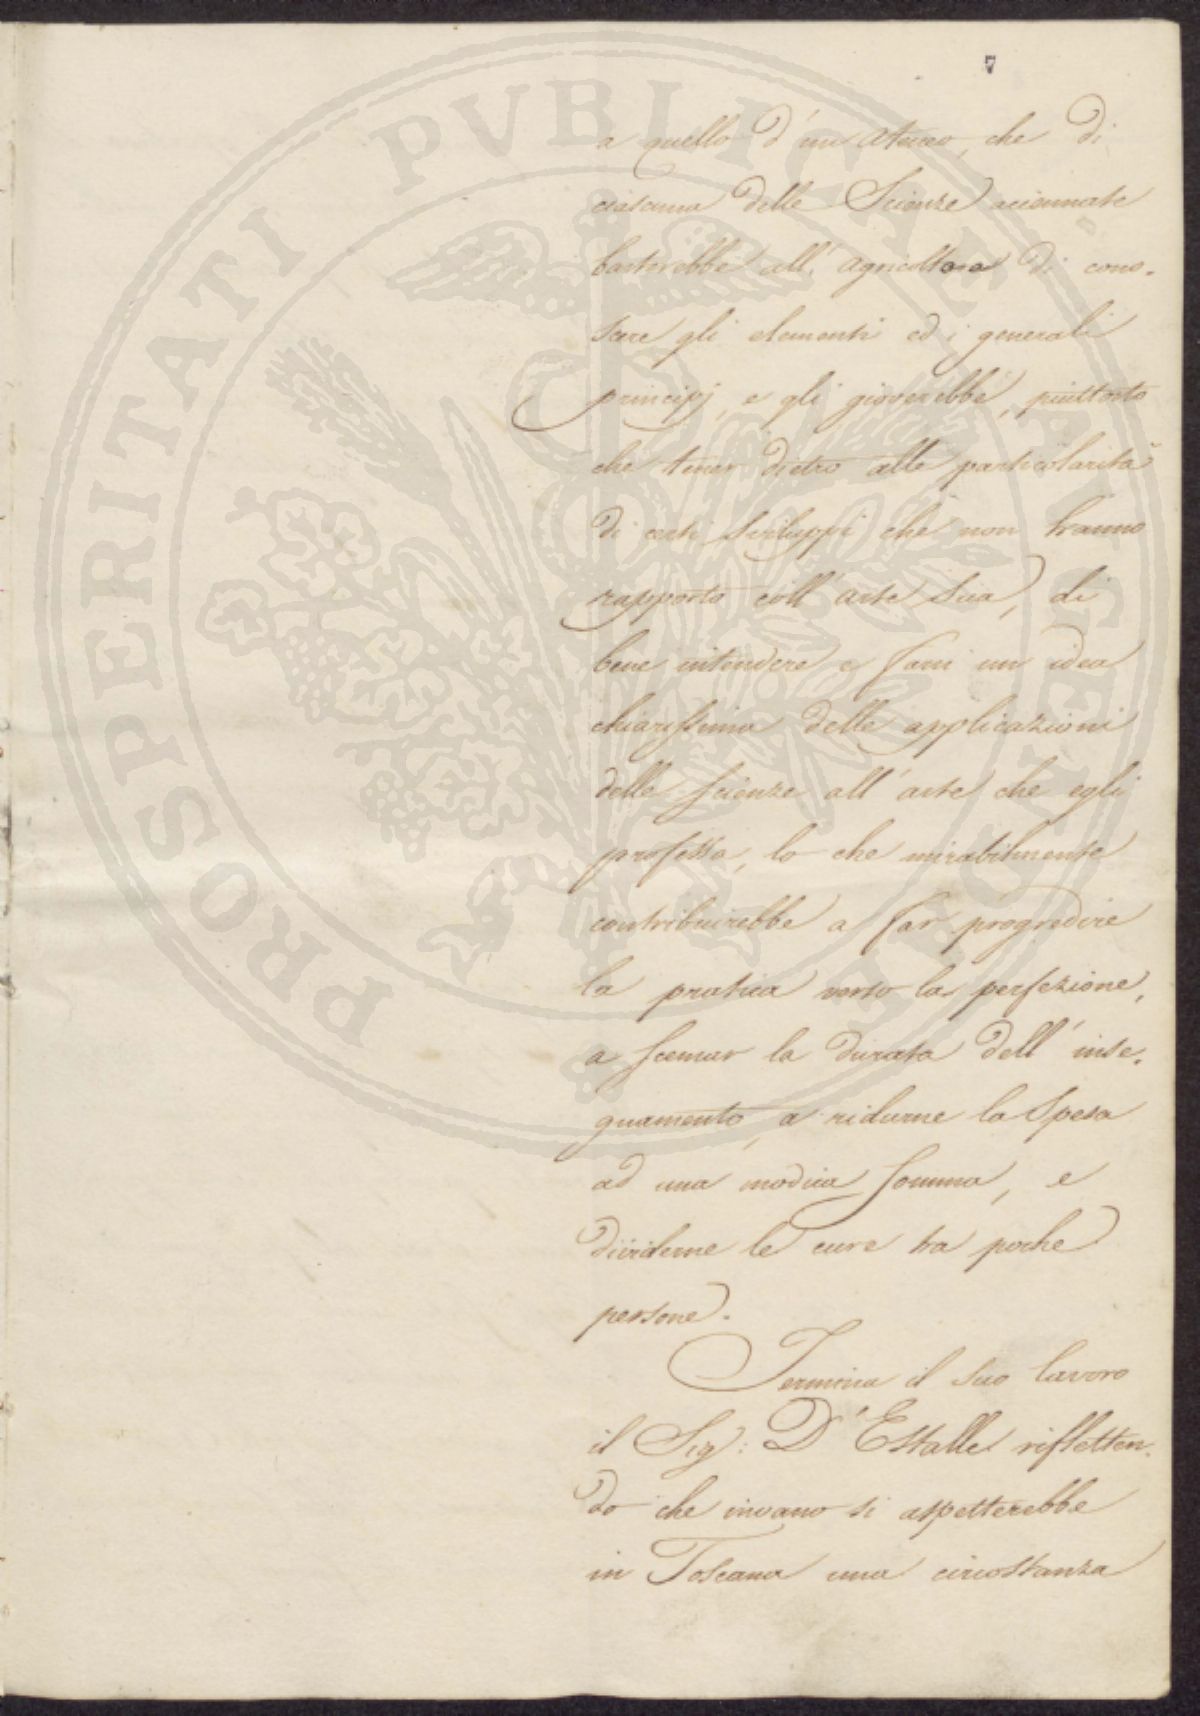 7
a quello d'un Ateneo, che di
ciascuna delle Scienze accennate
basterebbe all'Agricoltore di cono-
scere gli elementi ed i generali
principj, e gli gioverebbe, piuttosto
che tener dietro alle particolarità
di certi sviluppi che non hanno
rapporto coll'arte sua, di
bene intendere e farsi un idea
chiarissima delle applicazioni
delle scienze all'arte che egli
professa, lo che mirabilmente
contribuirebbe a far progredire
la pratica verso la perfezione,
a scemar la durata dell'inse-
gnamento, a ridurne la spesa
ad una modica somma, e
dividerne le cure tra poche
persone.
Termina il suo lavoro
il Sig: D'Estalle rifletten-
do che invano si aspetterebbe
in Toscana una circostanza
PROSPERITATI PVBLICAE AVGENDAE